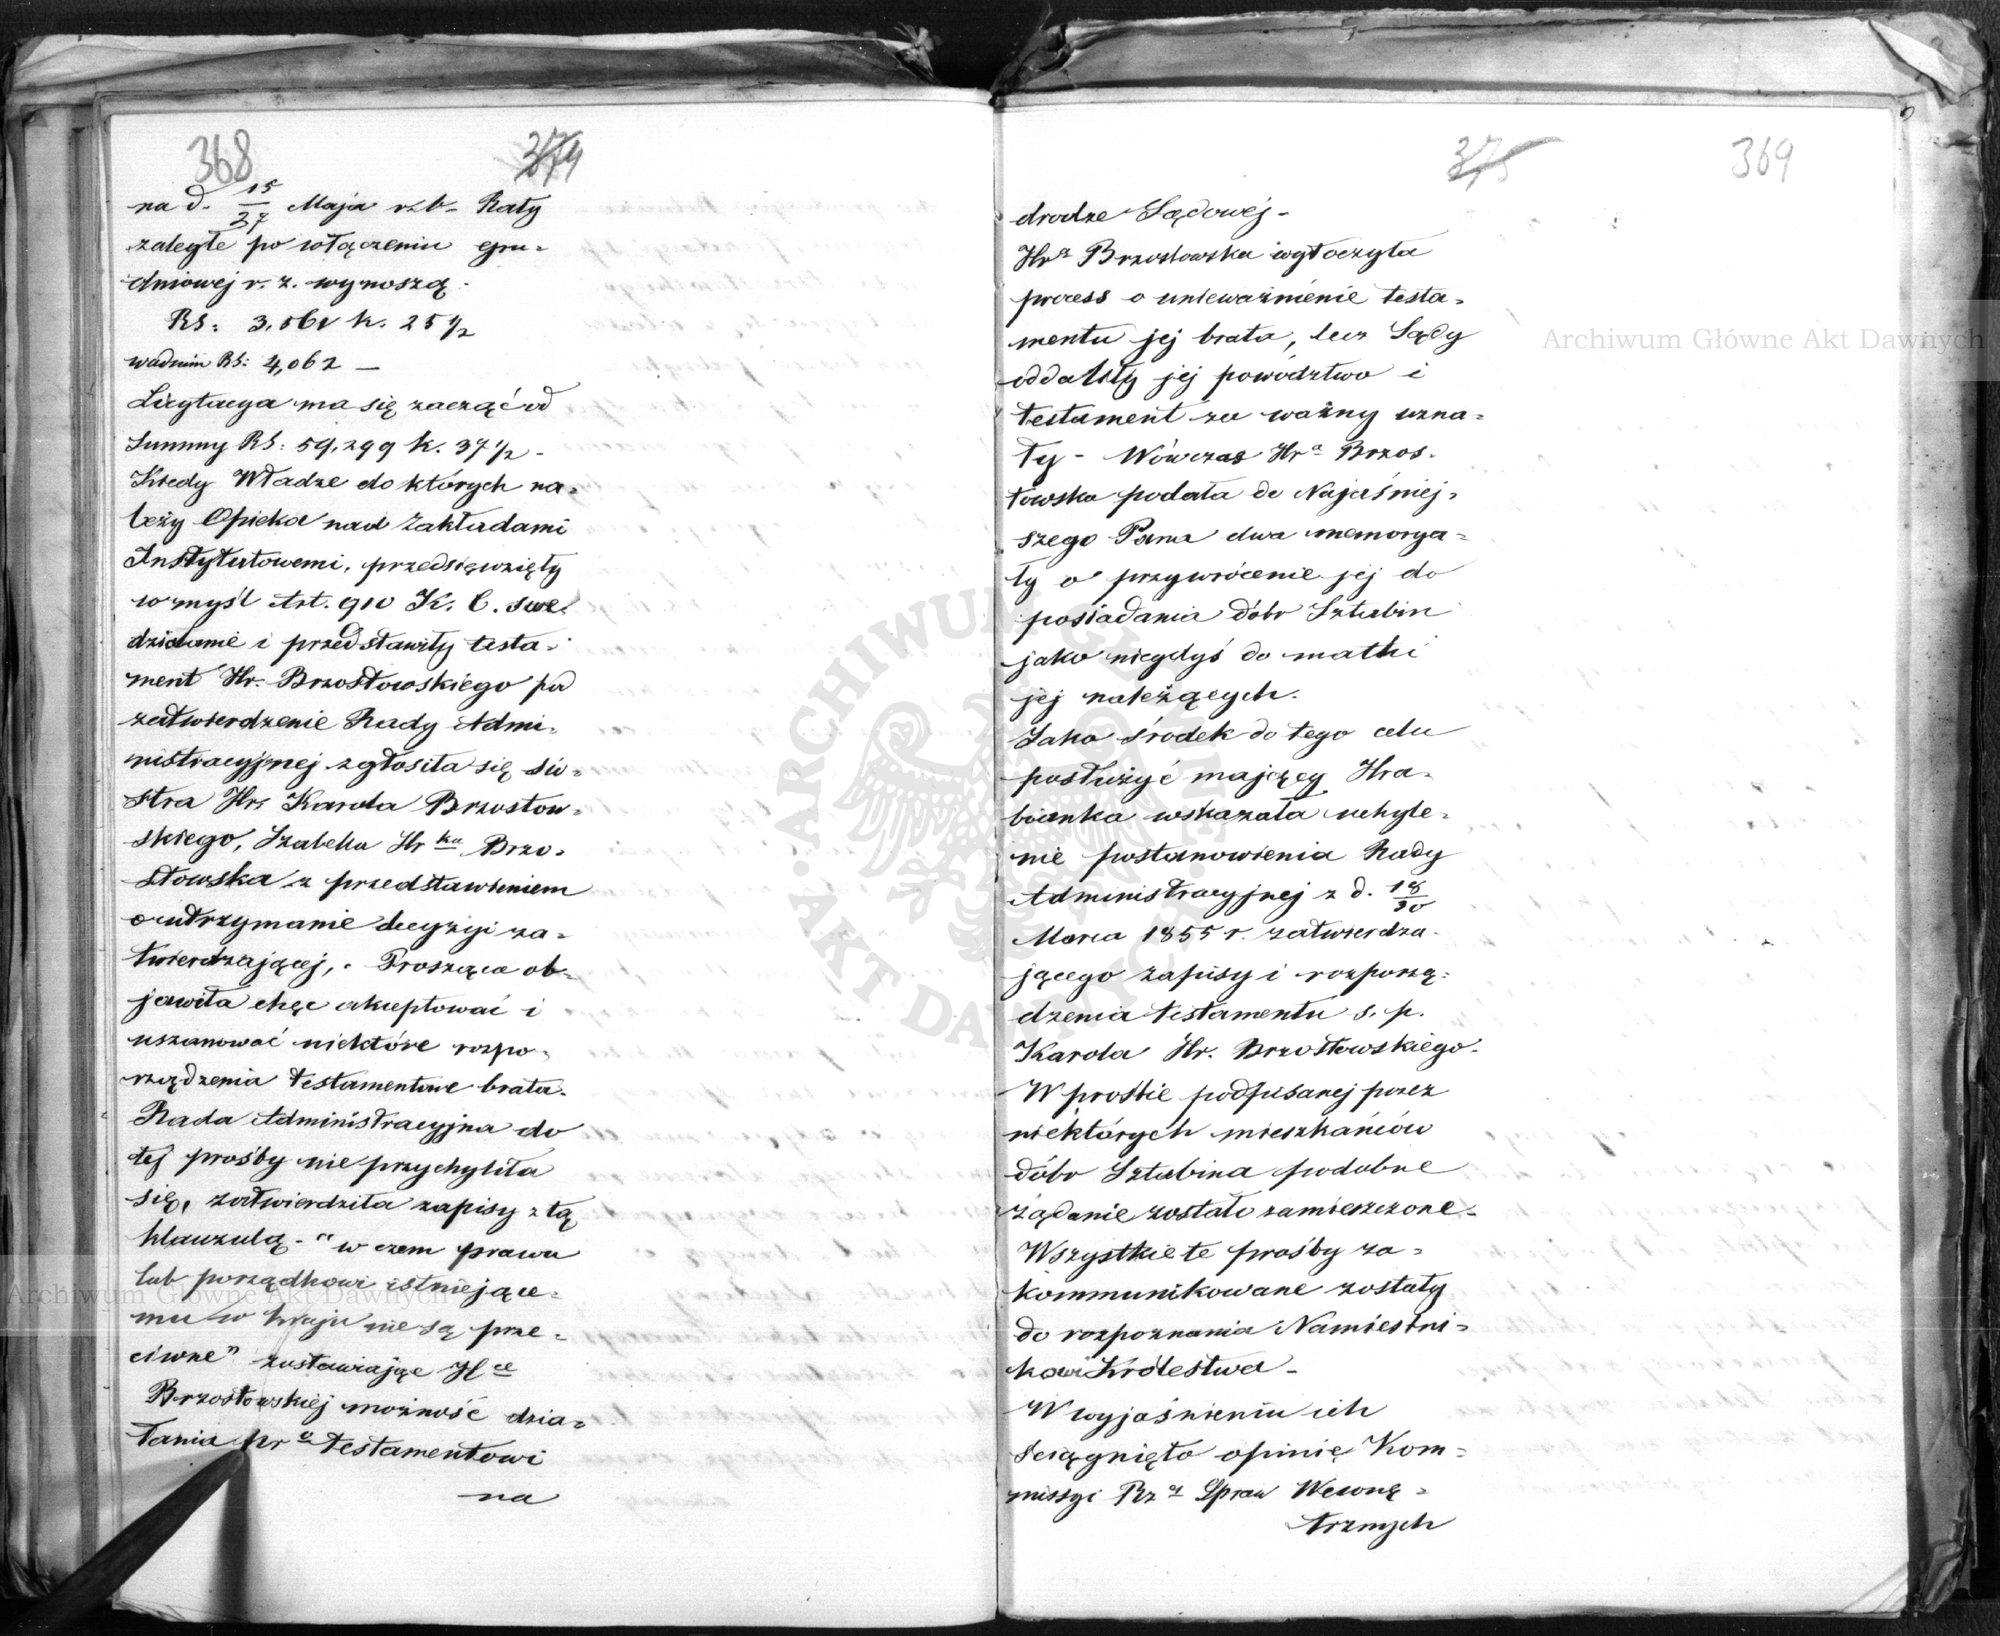 368 374
na d. 15/27 Maja r. b. Raty
zaległe po włączeniu gru-
dniowej r. z. wynoszą.
RS: 3,561 k. 25 1/2
wadium RS: 4,062 —
Licytacya ma się zacząć od
Summy RS: 59,299 k. 37 1/2 -
Kiedy Władze do których na-
leży Opieka nad Zakładami
Instytutowemi, przedsięwzięły
w myśl Art. 910 K. C. swe
działanie i przedstawiły testa-
ment Hr. Brzostowskiego pod
zatwierdzenie Rady Admi-
nistracyjnej zgłosiła się sio-
stra Hr. Karola Brzostow-
skiego, Izabella Hr ka Brzo-
stowska z przedstawieniem
o utrzymanie decyzyi za-
twierdzającej, . Prosząca ob-
jawiła chęć akceptować i
uszanować niektóre rozpo-
rządzenia testamentowe brata.
Rada Administracyjna do
tej prośby nie przychyliła
się, zatwierdziła zapisy z tą
klauzulą - "w czem prawu
lub porządkowi istniejące-
mu w kraju nie są prze-
ciwne" zostawiając H ce
Brzostowskiej możność dzia-
łania pr o testamentowi
na
375 369
drodze Sądowej -
Hr a Brzostowska wytoczyła
process o unieważnienie testa-
mentu jej brata, lecz Sądy
oddaliły jej powództwo i
testament za ważny uzna-
ły - Wówczas Hr a Brzos-
towska podała do Najaśniej-
szego Pana dwa memorya-
ły o przywrócenie jej do
posiadania dóbr Sztabin
jako niegdyś do matki
jej należących.
Jako środek do tego celu
posłużyć mający Hra-
bianka wskazała uchyle-
nie postanowienia Rady
Administracyjnej z d. 18/30
Marca 1855 r. zatwierdza-
jącego zapisy i rozporzą-
dzenia testamentu s. p.
Karola Hr. Brzostowskiego.
W prośbie podpisanej przez
niektórych mieszkańców
dóbr Sztabina podobne
żądanie zostało zamieszczone.
Wszystkie te prośby za-
kommunikowane zostały
do rozpoznania Namiestni-
kowi Królestwa -
W wyjaśnieniu ich
ściągnięto opinię Kom-
missyi Rz a Spraw Wewnę-
trznych
Archiwum Główne Akt Dawnych
Archiwum Główne Akt Dawnych
ARCHIWUM GŁÓWNE AKT DAWNYCH